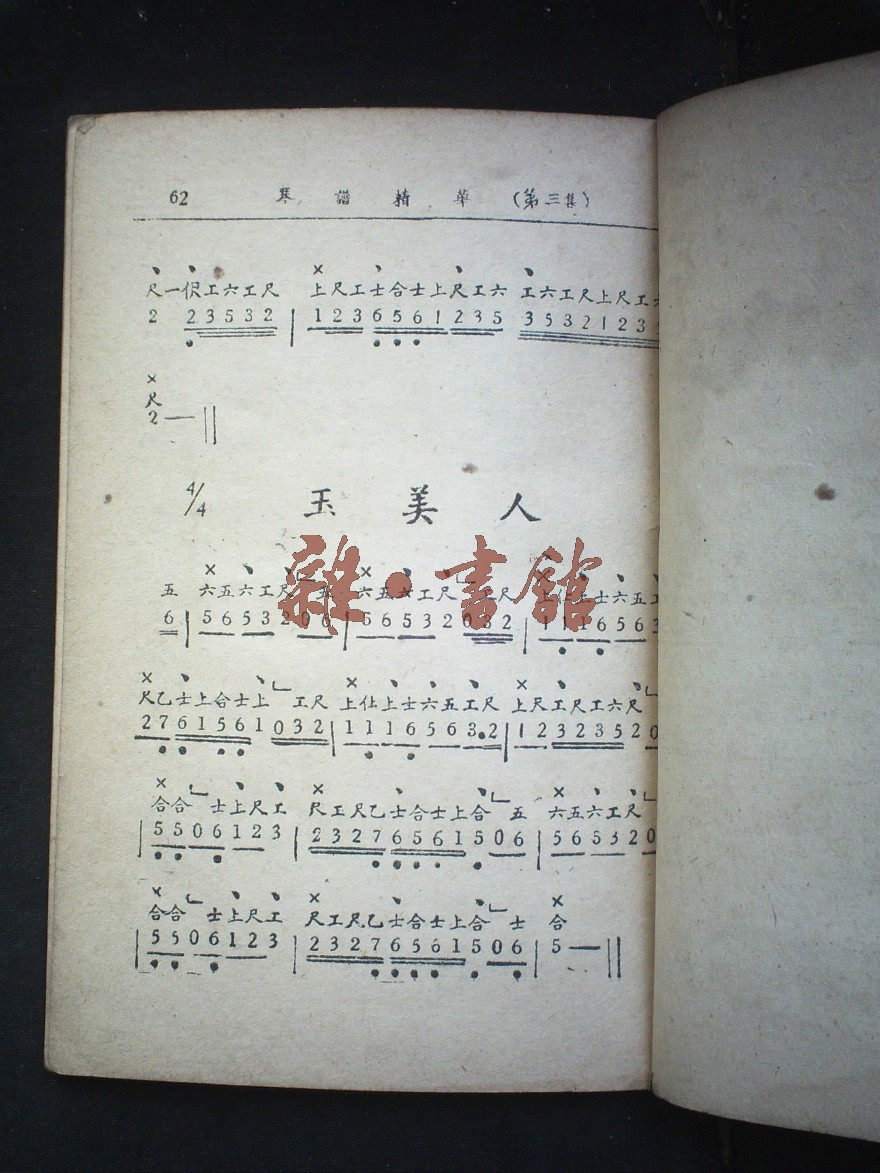 62 琴譜精華 (第三集)
尺一伬工六工尺 上尺工士合士上尺工六 工六工尺上尺工
2 235332 | 1236561235 35321235
尺
2 — ||
4/4 玉美人
雜·書館
五 六五六工尺 五 六五六工尺 工尺 上仩上士六五工
6 | 5653206 | 56532032 | 1116563
尺乙士上合士上 工尺 上仕上士六五工尺 上尺工尺工六尺
2761561032 | 1116563.2 | 12323520
合合 士上尺工 尺工尺乙士合士上合 五 六五六工尺
| 5506123 | 23276561506 | 565320
合合 士上尺工 尺工尺乙士合士上合 士 合
| 5506123 | 23276561506 | 5 — ||